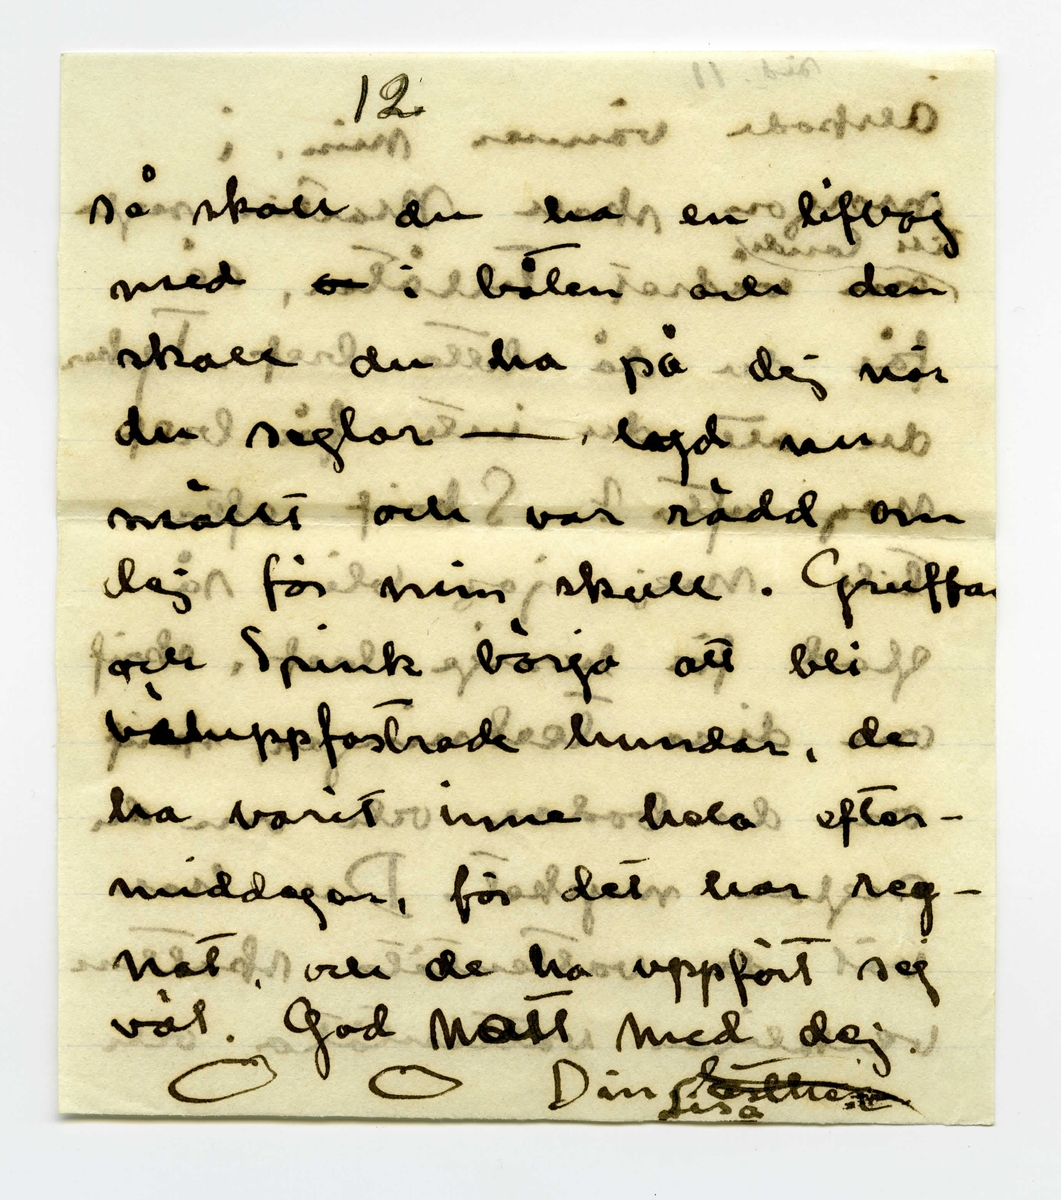 12
så skall du ha en lifboj
med i båten och den
skall du ha på dej när
du seglar — lyd nu
mållt och var rädd om
dej för min skull. Gruffbar
och Spink börja att bli
väluppfostrade hundar, de
ha varit inne hela efter-
middagen, för det har reg-
nat, och de ha uppfört sej
väl. God Natt med dej.
O O Din Esther
Lisa